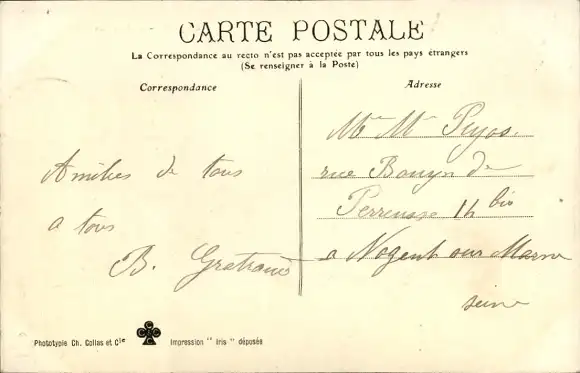 CARTE POSTALE
La Correspondance au recto n'est pas acceptée par tous les pays étrangers
(Se renseigner à la Poste)
Correspondance
Adresse
Amitiés de tous
a tous
B.
Mr Mme
rue Bauyn de
Perreuse 14 bis
a Nogent sur Marne
seine
Phototypie Ch. Collas et Cie
CCCC
Impression " Iris " déposée